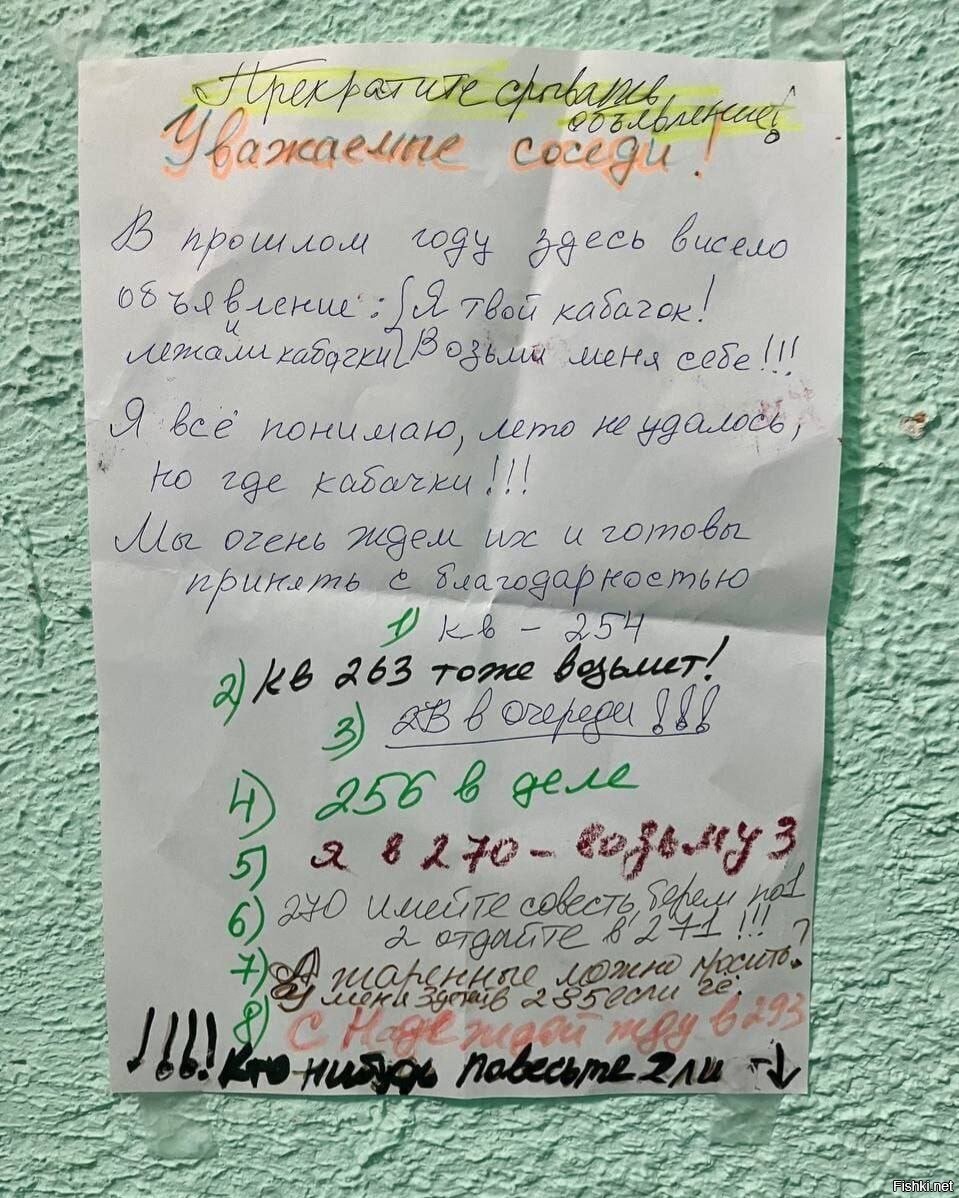 Прекратите срывать
объявление!
Уважаемые соседи!
В прошлом году здесь висело
объявление: Я твой кабачок!
и
лежали кабачки Возьми меня себе!!!
Я всё понимаю, лето не удалось,
но где кабачки!!!
Мы очень ждем их и готовы
принять с благодарностью
1) кв - 254
2) Кв 263 тоже возьмет!
3) в очереди!!!
4) 256 в деле
5) Я в 270 - возьму 3
6) 270 имейте совесть, берем по 1
2 отдайте в 271!!!
7) А жаренные можно просить?
У меня в 235 если че.
8) С Надеждой жду в 293
!!!! Кто нибудь повесьте 2 ли ↓
Fishki.net